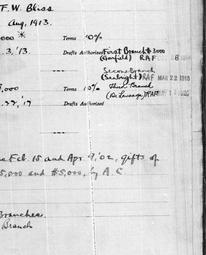 F.W. Bliss
Aug, 1913.
000 * Terms 10%
.3,'13. Drafts Authorized First Branch $3000
(Garfield) RAF
Second Branch
(Seabright) RAF MAR 22 1916
,000 Terms 10% Third Branch
.27,'17 Drafts Authorized (De Laveaga) RAF
Feb 15 and Apr 9, '02, gifts of
5,000 and $5,000, by A.C.
Branches.
Branch